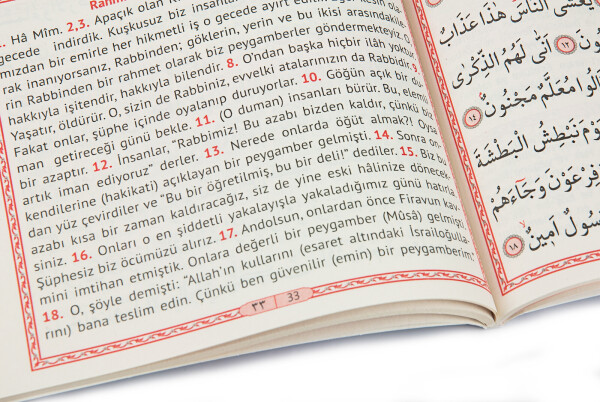 Rahmân
1. Hâ Mîm. 2,3. Apaçık olan Ki
gecede indirdik. Kuşkusuz biz insanları
mızdan bir emirle her hikmetli iş o gecede ayırt edilir.
rak inanıyorsanız, Rabbinden; göklerin, yerin ve bu ikisi arasındakile
rin Rabbinden bir rahmet olarak biz peygamberler göndermekteyiz.
hakkıyla işitendir, hakkıyla bilendir. 8. O'ndan başka hiçbir ilâh yoktur
Yaşatır, öldürür. O, sizin de Rabbiniz, evvelki atalarınızın da Rabbidir. 9.
Fakat onlar, şüphe içinde oyalanıp duruyorlar. 10. Göğün açık bir du
man getireceği günü bekle. 11. (O duman) insanları bürür. Bu, elem
bir azaptır. 12. İnsanlar, "Rabbimiz! Bu azabı bizden kaldır, çünkü biz
artık iman ediyoruz" derler. 13. Nerede onlarda öğüt almak?! Oysa
kendilerine (hakikati) açıklayan bir peygamber gelmişti. 14. Sonra on
dan yüz çevirdiler ve "Bu bir öğretilmiş, bu bir deli!" dediler. 15. Biz bu
azabı kısa bir zaman kaldıracağız, siz de yine eski hâlinize dönecek
siniz. 16. Onları o en şiddetli yakalayışla yakaladığımız günü hatırla
Şüphesiz biz öcümüzü alırız. 17. Andolsun, onlardan önce Firavun kav
mini imtihan etmiştik. Onlara değerli bir peygamber (Mûsâ) gelmişti
18. O, şöyle demişti: "Allah'ın kullarını (esaret altındaki İsrailoğulla
rını) bana teslim edin. Çünkü ben güvenilir (emin) bir peygamberim."
٣٣ 33
يَغْشَى النَّاسَ هٰذَا عَذَابٌ
١٢ اَنّٰى لَهُمُ الذِّكْرٰى
قَالُوا مُعَلَّمٌ مَجْنُونٌ
١٤
يَوْمَ نَبْطِشُ الْبَطْشَةَ
فِرْعَوْنَ وَجَٓاءَهُمْ
رَسُولٌ اَمٖينٌ ١٨